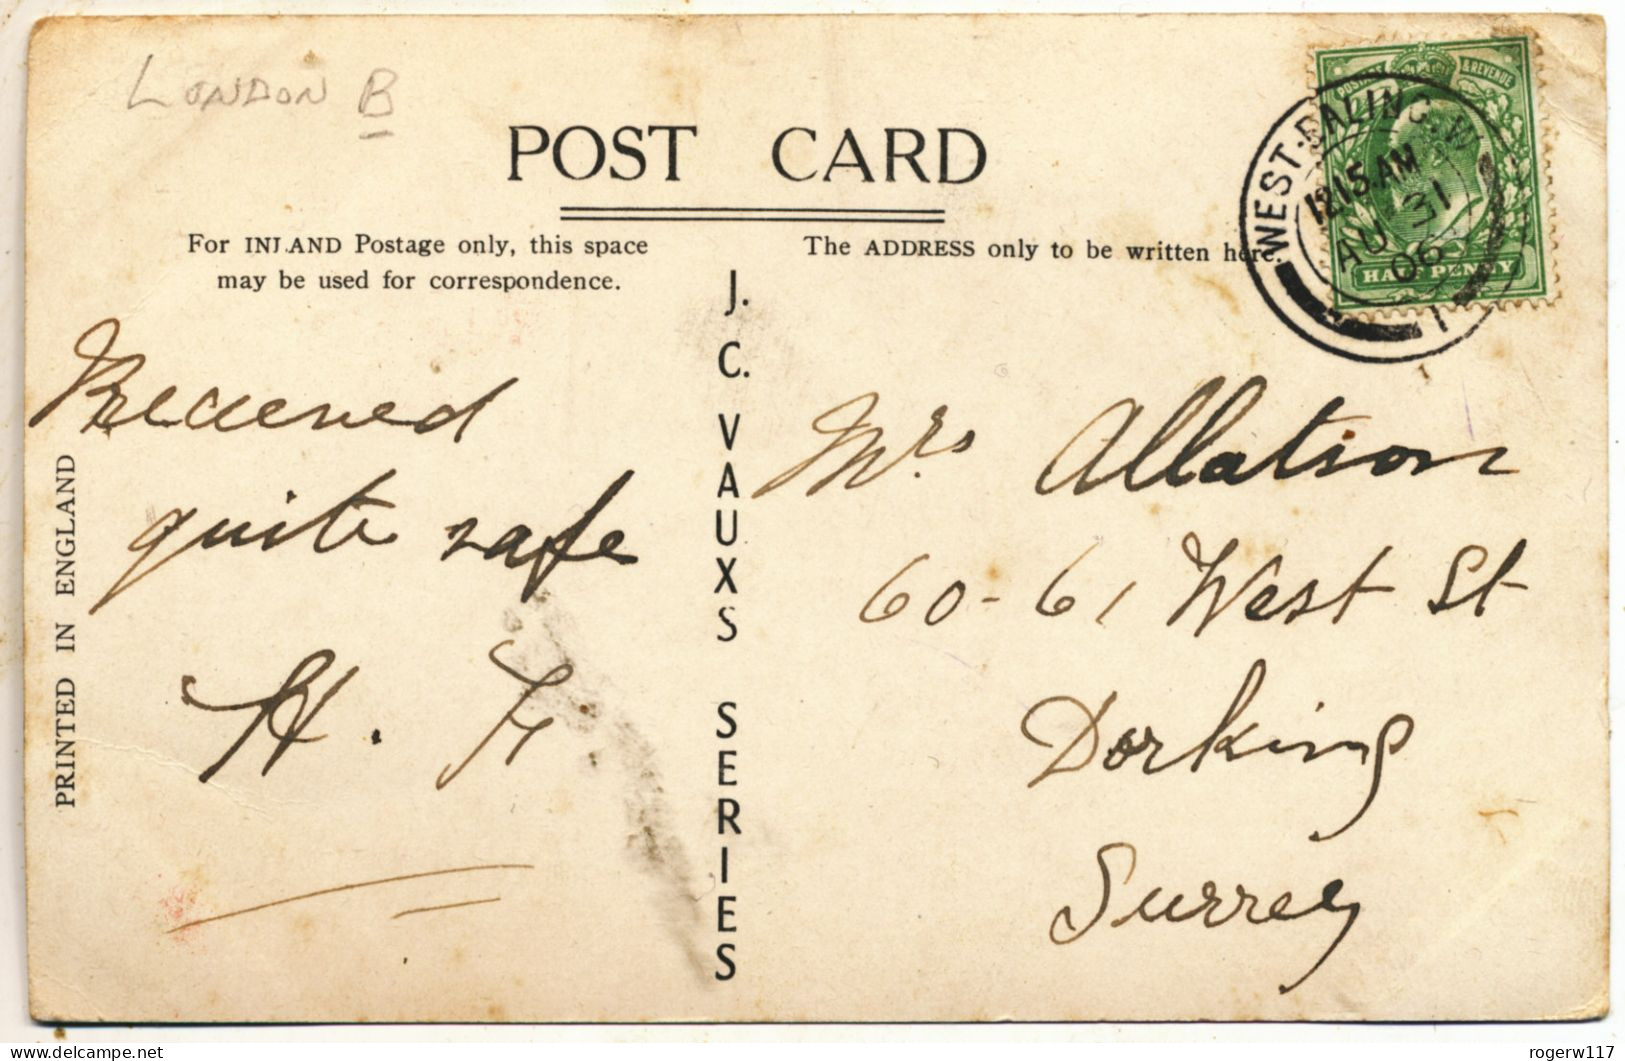 LONDON B
POST CARD
For INLAND Postage only, this space
may be used for correspondence.
The ADDRESS only to be written here.
POSTAGE & REVENUE
HALF PENNY
WEST·EALING.W
12.15.AM
AU 31
06
1
J. C. VAUXS SERIES
PRINTED IN ENGLAND
Received
quite safe
H. F
Mrs Allatson
60-61 West St
Dorking
Surrey
rogerw117